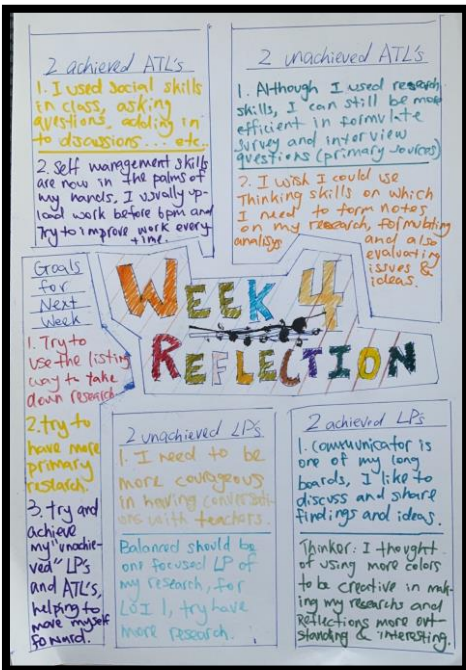 2 achieved ATL's
1. I used social skills
in class, asking
questions, adding in
to discussions... etc..
2. Self management skills
are now in the palms of
my hands, I usually up-
load work before 6pm and
Try to improve work every
time.
2 unachieved ATL's
1. Although I used research
skills, I can still be more
efficient in formulate
survey and interview
questions (primary sources)
2. I wish I could use
Thinking skills on which
I need to form notes
on my research, formulating
analisys and also
evaluating
issues &
ideas.
Goals
for
Next
Week
1. Try to
use the listing
way to take
down research
2. try to
have more
primary
research.
3. try and
achieve
my "unachie-
ved" LPs
and ATL's,
helping to
move myself
forward.
WEEK 4
REFLECTION
2 unachieved LP's
1. I need to be
more courageous
in having conversati-
ons with teachers.
Balanced should be
one focused LP of
my research, for
LOI 1, try have
more research.
2 achieved LP's
1. Communicator is
one of my long
boards, I like to
discuss and share
findings and ideas.
Thinker: I thought
of using more colors
to be creative in mak-
ing my researchs and
Reflections more out-
standing & interesting.